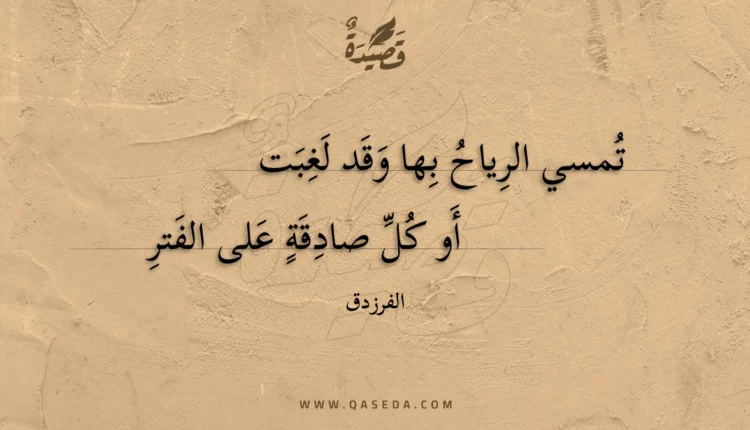 قَصِيْدَةٌ
تُمسي الرِياحُ بِها وَقَد لَغِبَت
أَو كُلِّ صادِقَةٍ عَلى الفَترِ
الفرزدق
WWW.QASEDA.COM